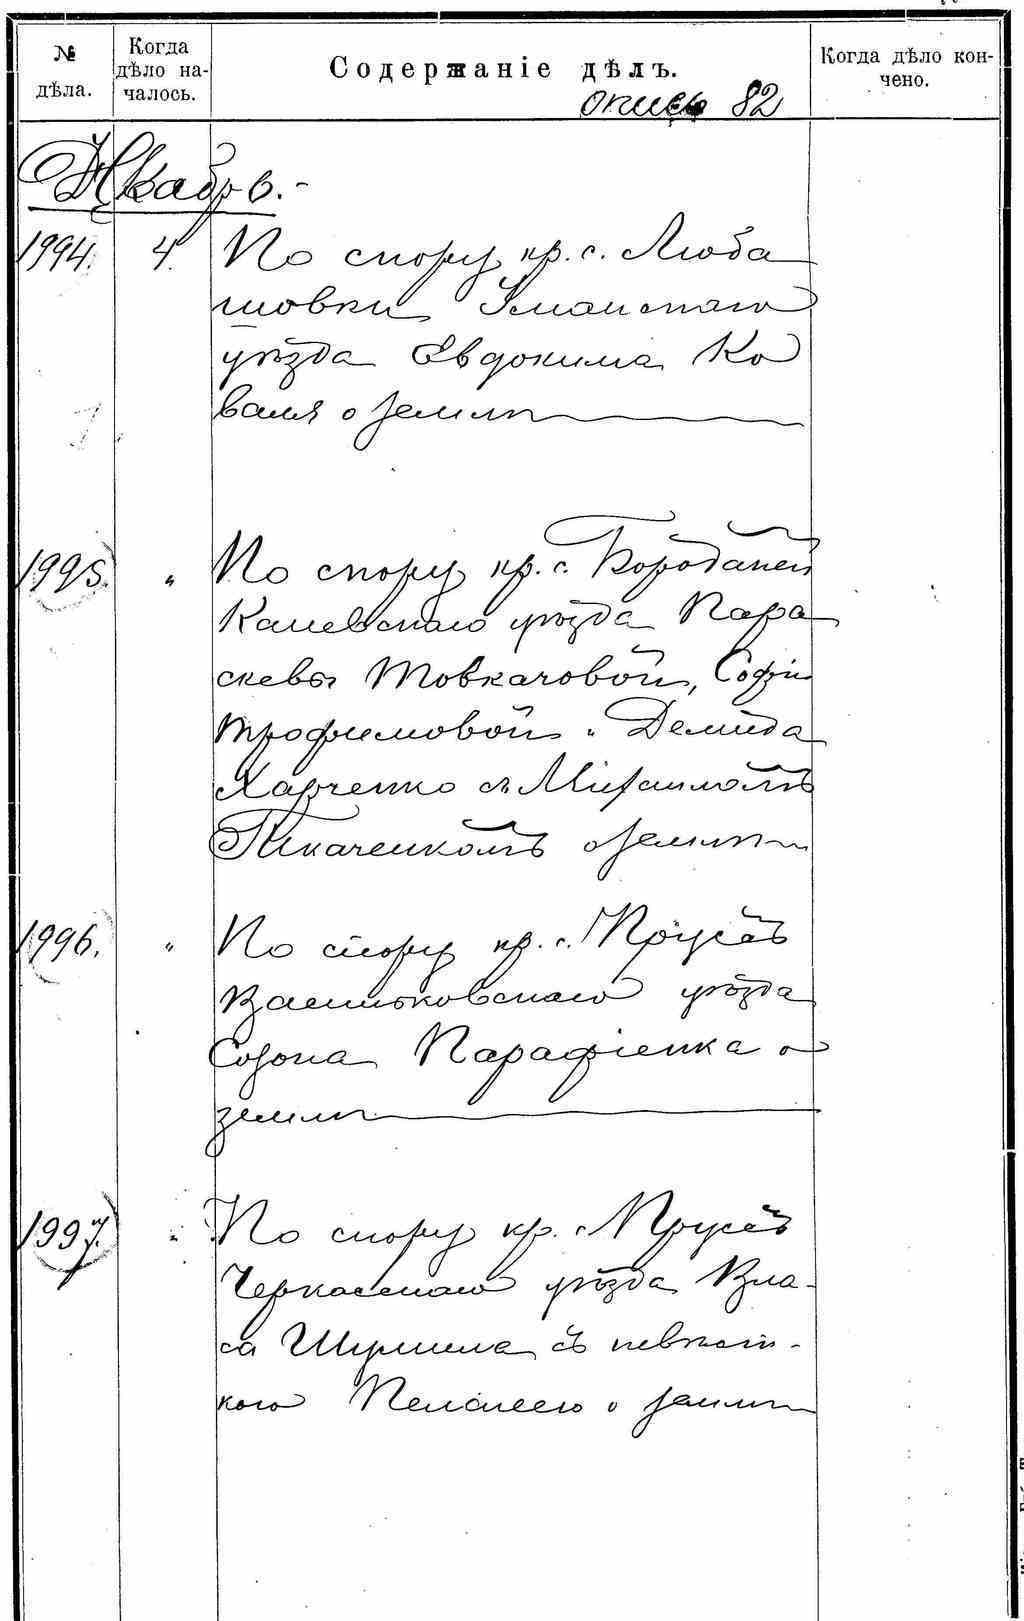 № дѣла.
Когда дѣло на-
чалось.
Содержаніе дѣлъ.
Когда дѣло кон-
чено.
опись 82
Декабрь.-
1994. 4. По спору кр. с. Люба
шовки Уманскаго
уѣзда Евдокима Ко
валя о землѣ
1995. " По спору кр. с. Бородaней
Каневскаго уѣзда Пара
скевы Товкачовой, Софіи
Трофимовой и Демида
Харченко съ Михаиломъ
Ткаченкомъ о землѣ
1996. " По спору кр. с. Прусъ
Васильковскаго уѣзда
Созона Парафіенка о
землѣ
1997. " По спору кр. с. Прусъ
Черкасскаго уѣзда Вла-
са Шулика съ невѣст-
кою Пелагеею о землѣ